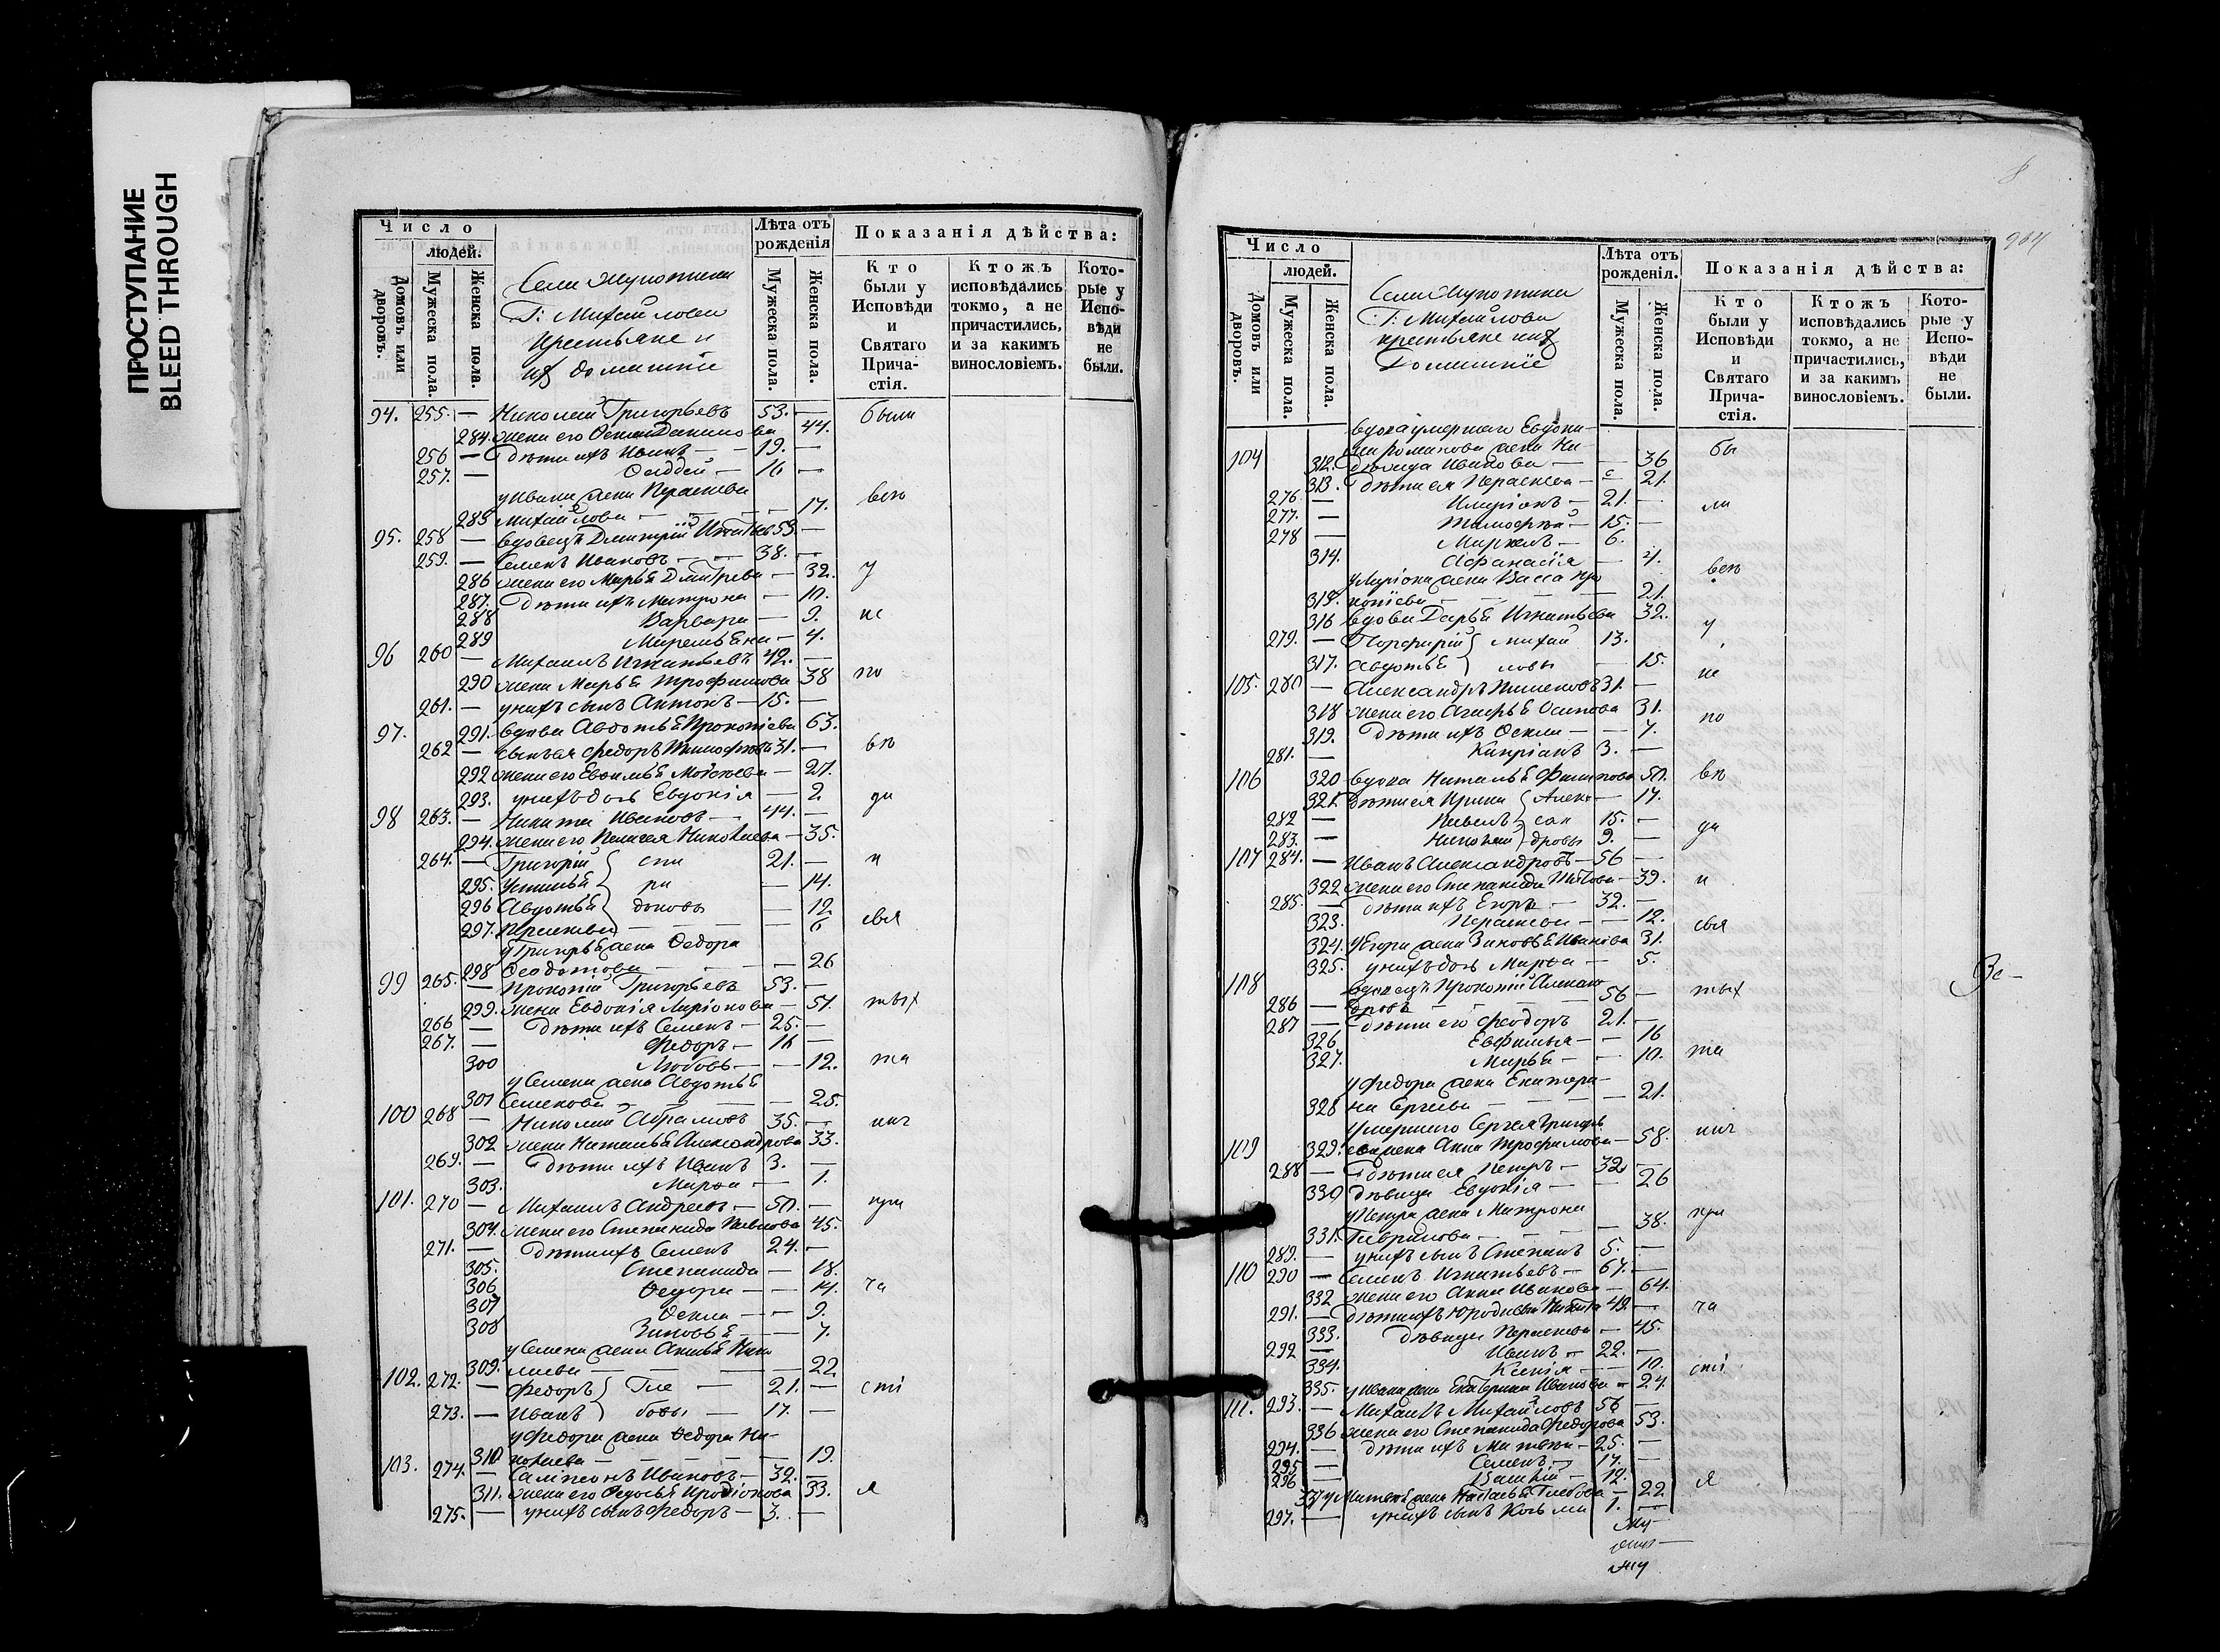 ПРОСТУПАНИЕ
BLEED THROUGH
Число
людей.
Домовъ или дворовъ.
Мужеска пола.
Женска пола.
Г: Михайлова
крестьяне и
ихъ домашніе
Лѣта отъ рожденія
Мужеска пола.
Женска пола.
Показанія дѣйства:
Кто были у Исповѣди и Святаго Прича- стія.
Ктожъ исповѣдались токмо, а не причастились, и за какимъ винословіемъ.
Кото- рые у Испо- вѣди не были.
94. 255. — Николай Григорьевъ 53. — были
284. жена его Фекла Данилова 44.
256 — дѣти ихъ Иванъ — 19. —
257. — Фаддей — 16 —
у Ивана жена Параскева
285 Михайлова — 17. всѣ
95. 258 — вдовецъ Дмитрій Игнатьевъ 59. —
259. — Семенъ Ивановъ — 38. —
286 жена его Марья Дмитрева — 32. у
287. дѣти ихъ Матрона — 10.
288 Варвара — 9. ис
289 Маремьяна — 4.
96 260 — Михаилъ Игнатьевъ 42. —
290 жена Марья Трофимова 38 по
261. — у нихъ сынъ Антонъ — 15. —
97. 291. вдова Авдотья Прокопіева 63.
262 — сынъ ея Федоръ Тимофѣевъ 31. — вѣ
292 жена его Евфимья Моисеева — 27.
293. у нихъ дочь Евдокія — 2 ди
98 263. — Никита Ивановъ — 44. —
294. жена его Пелагея Николаева — 35.
264. — Григорій спи 21. — и
295. Устинья ри — 14.
296 Авдотья доновы — 12
297. Параскева — 6 свя
у Григорья жена Федора
298 Феодотова — 26
99 265. — Прокопій Григорьевъ 53. —
299. жена Евдокія Ларіонова — 51. тых
266 — дѣти ихъ Семенъ — 25. —
267. — Федоръ — 16 —
300 Любовь — 12. та
у Семена жена Авдотья
301 Семенова — 25.
100 268 — Николай Абрамовъ 35. — инъ
302 жена Наталья Александрова 33.
269. — дѣти ихъ Иванъ 3. —
303. Марфа — 1.
101. 270 — Михаилъ Андреевъ — 50. — при
304. жена его Степанида Павлова 45.
271. — дѣти ихъ Семенъ 24. —
305. Степанида — 18.
306 Федора — 14. ча
307 Фекла — 9.
308 Зиновья — 7.
у Семена жена Акилина
309. — 22
102. 272. — Федоръ Гле — 21. — сті
273. — Иванъ бовы — 17 —
у Федора жена Федора Ни-
310 колаева — 19.
103. 274. — Сампсонъ Ивановъ — 32. —
311. жена его Федосья Иродіонова 33. я
275. — у нихъ сынъ Федоръ — 3. —
8
264
Число
людей.
Домовъ или дворовъ.
Мужеска пола.
Женска пола.
Г: Михайлова
крестьяне ихъ
домашніе
Лѣта отъ рожденія.
Мужеска пола.
Женска пола.
Показанія дѣйства:
Кто были у Исповѣди и Святаго Прича- стія.
Ктожъ исповѣдались токмо, а не причастились, и за какимъ винословіемъ.
Кото- рые у Испо- вѣди не были.
вдова умершаго Евдоки-
ма Романова жена На-
104 312. дежда Иванова — 36 бы
313. дѣти ея Параскева — 21.
276. — Иларіонъ — 21. — ли
277. — Тимофѣй — 15. —
278 — Маркелъ — 6.
314. Афанасія — 4. всѣ
у Ларіона жена Васса Про
315. копіева — 21.
316 вдова Дарья Игнатьева 32. у
279. — Порфирій Михай 13.
317. Авдотья ловы — 15. ис
105. 280 — Александръ Пименовъ 31. —
318 жена его Агафья Осипова 31. по
319. дѣти ихъ Фекла — 7.
281. — Кипріанъ 3. —
106 320 вдова Наталья Филипова 50. вѣ
321. дѣти ея Ирина Алек — 17.
282 — Павелъ сан 15. — ди
283. — Николай дровы 9. —
107 284. — Иванъ Александровъ — 56 —
322 жена его Степанида Титова — 39. и
285. — дѣти ихъ Егоръ — 32. —
323. Параскева — 12. свя
324. у Егора жена Зиновья Иванова 31.
325. у нихъ дочь Марфа — 5.
108 вдовецъ Прокопій Алексан тых
286 — дровъ 56 —
287 — дѣти его Феодоръ 21. —
326 Евфимья — 16
327. Марья — 10. та
у Федора жена Екатери-
328 на Сергѣева — 21.
умершаго Сергѣя Григорь инъ
109 329. ева жена Анна Трофимова — 58.
288 — дѣти ея Петръ — 32 —
330 дѣвица Евдокія — 26
у Петра жена Матрона при
331. Гаврилова — 38.
289. — у нихъ сынъ Степанъ 5. —
110 290 — Семенъ Игнатьевъ — 67. —
332 жена его Анна Иванова — 64.
291. — дѣти ихъ Юродивый Никита 49. — ча
333. дѣвица Параскева — 45.
292 — Иванъ — 22. —
334. Ксенія — 10. сті
335. у Ивана жена Екатерина Иванова — 24.
111. 293. — Михаилъ Михайловъ 56 —
336 жена его Степанида Федорова 53.
294. — дѣти ихъ Матвѣй — 25. —
295 — Семенъ — 17. —
296 — Василій — 12. —
337 у Матвѣя жена Наталья Глебова — 22 я
297. — у нихъ сынъ Козьма 1. —